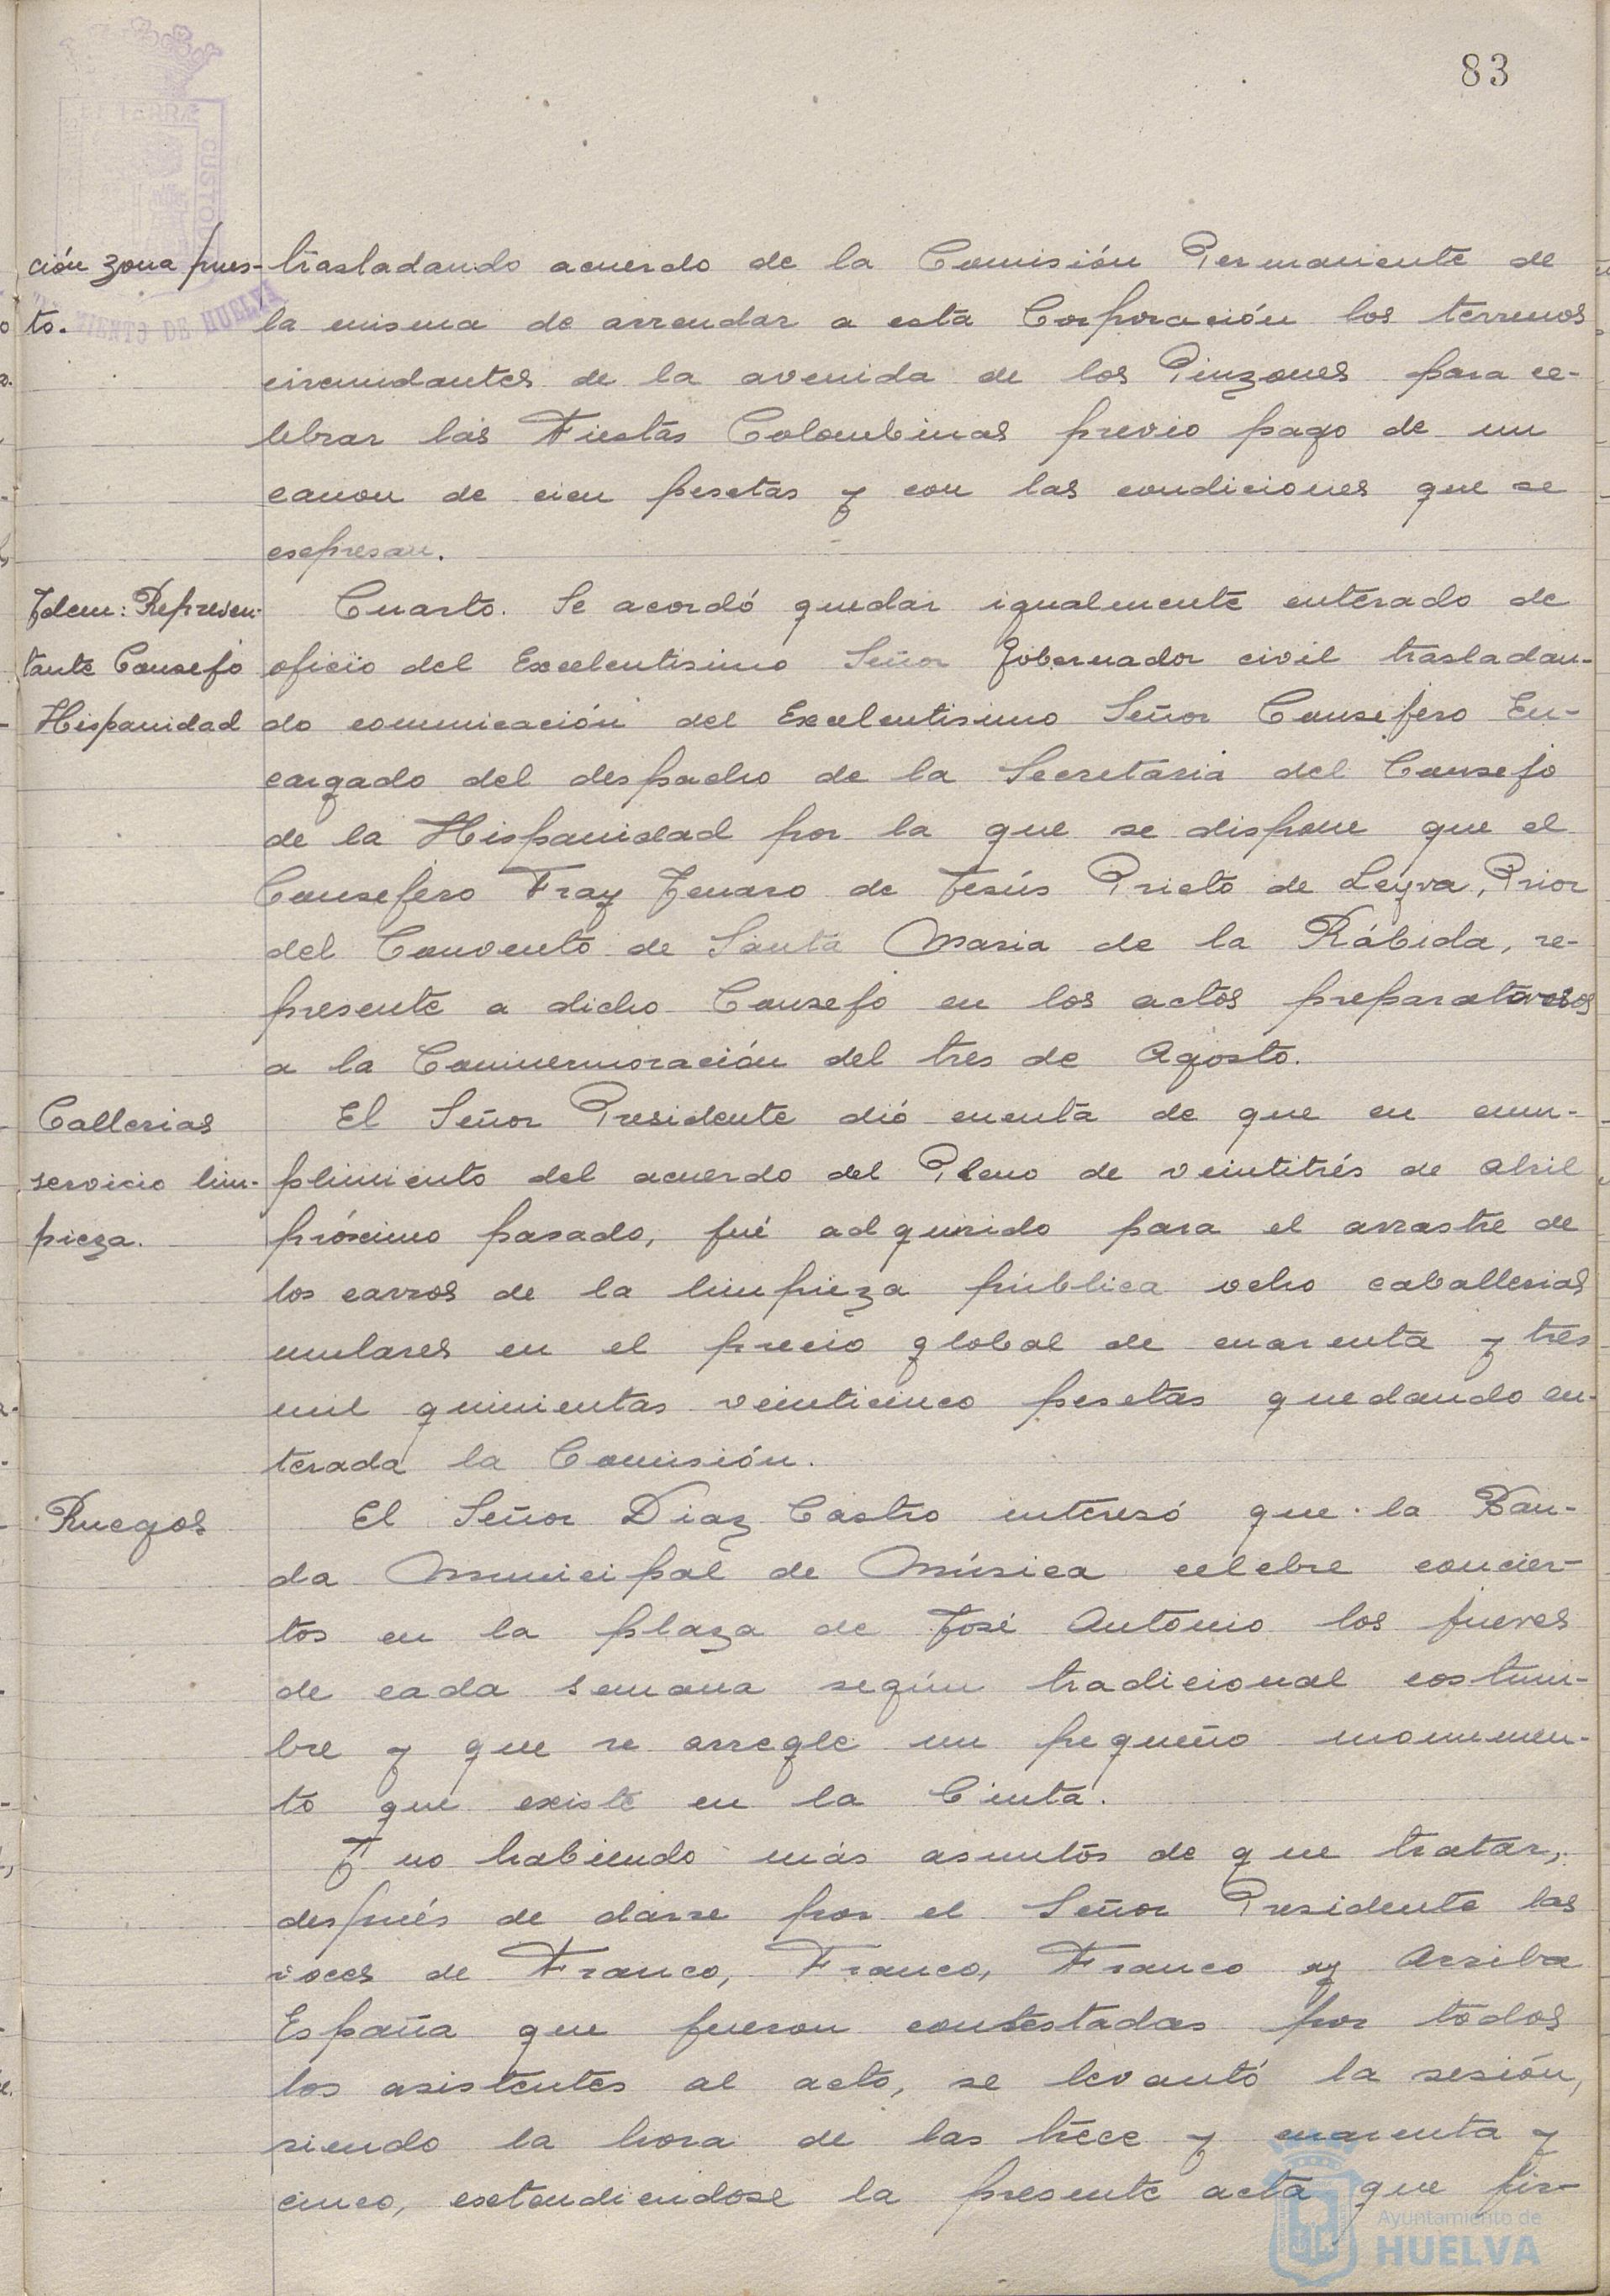 83
ción zona pues-
to.
trasladando acuerdo de la Comisión Permanente de
la misma de arrendar a esta Corporación los terrenos
circundantes de la avenida de los Pinzones para ce-
lebrar las Fiestas Colombinas previo pago de un
canon de cien pesetas y con las condiciones que se
expresan.
Idem: Represen-
tante Consejo
Hispanidad
Cuarto. Se acordó quedar igualmente enterado de
oficio del Excelentisimo Señor Gobernador civil trasladan-
do comunicación del Excelentisimo Señor Consejero En-
cargado del despacho de la Secretaria del Consejo
de la Hispanidad por la que se dispone que el
Consejero Fray Jenaro de Jesús Prieto de Leyva, Prior
del Convento de Santa Maria de la Rábida, re-
presente a dicho Consejo en los actos preparatorios
a la Conmemoración del tres de Agosto.
Callerias
servicio lim-
pieza.
El Señor Presidente dió cuenta de que en cum-
plimiento del acuerdo del Pleno de veintitrés de Abril
próximo pasado, fué adquirido para el arrastre de
los carros de la limpieza pública ocho caballerias
mulares en el precio global de cuarenta y tres
mil quinientas veinticinco pesetas quedando en-
terada la Comisión.
Ruegos
El Señor Diaz Castro interesó que la Ban-
da Municipal de Música celebre concier-
tos en la plaza de José Antonio los jueves
de cada semana según tradicional costum-
bre y que se arregle un pequeño monumen-
to que existe en la Cinta.
Y no habiendo más asuntos de que tratar,
después de darse por el Señor Presidente las
voces de Franco, Franco, Franco y Arriba
España que fueron contestadas por todos
los asistentes al acto, se levantó la sesión,
siendo la hora de las trece y cuarenta y
cinco, extendiendose la presente acta que fir-
Ayuntamiento de
HUELVA